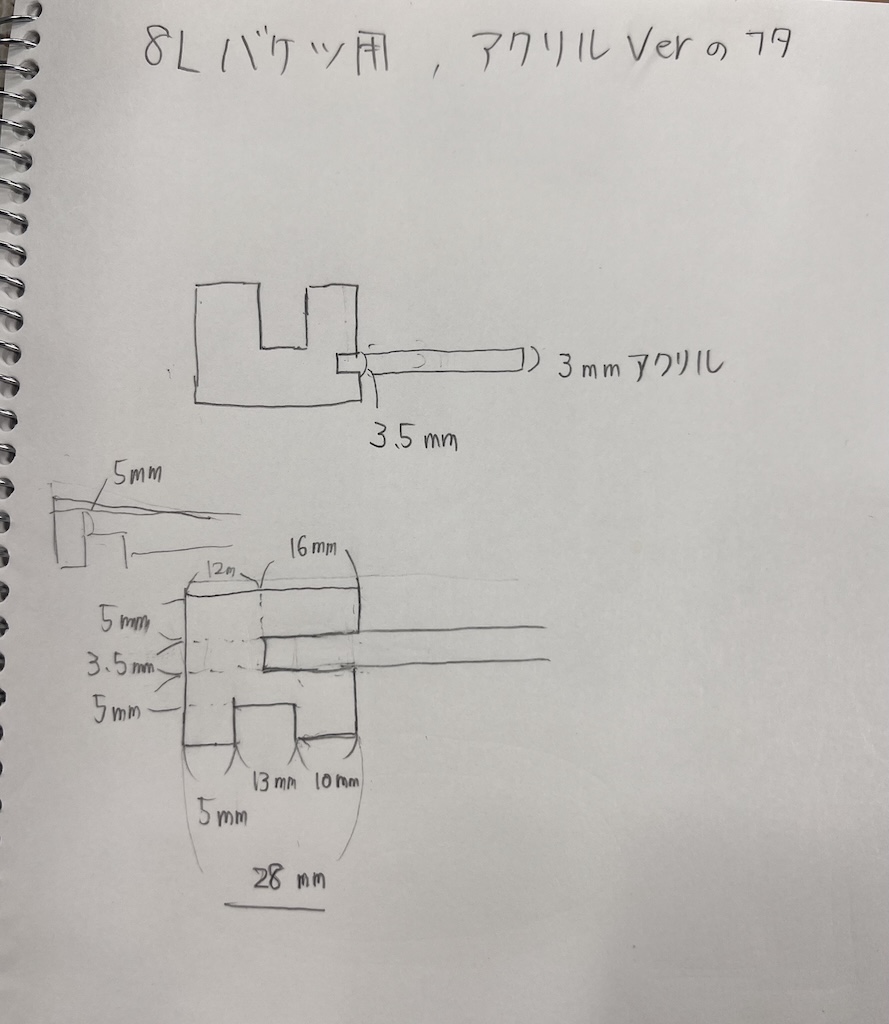 8Lバケツ用,アクリルVerのフタ
3mmアクリル
3.5mm
5mm
16mm
12m
5mm
3.5mm
5mm
13mm
10mm
5mm
28mm